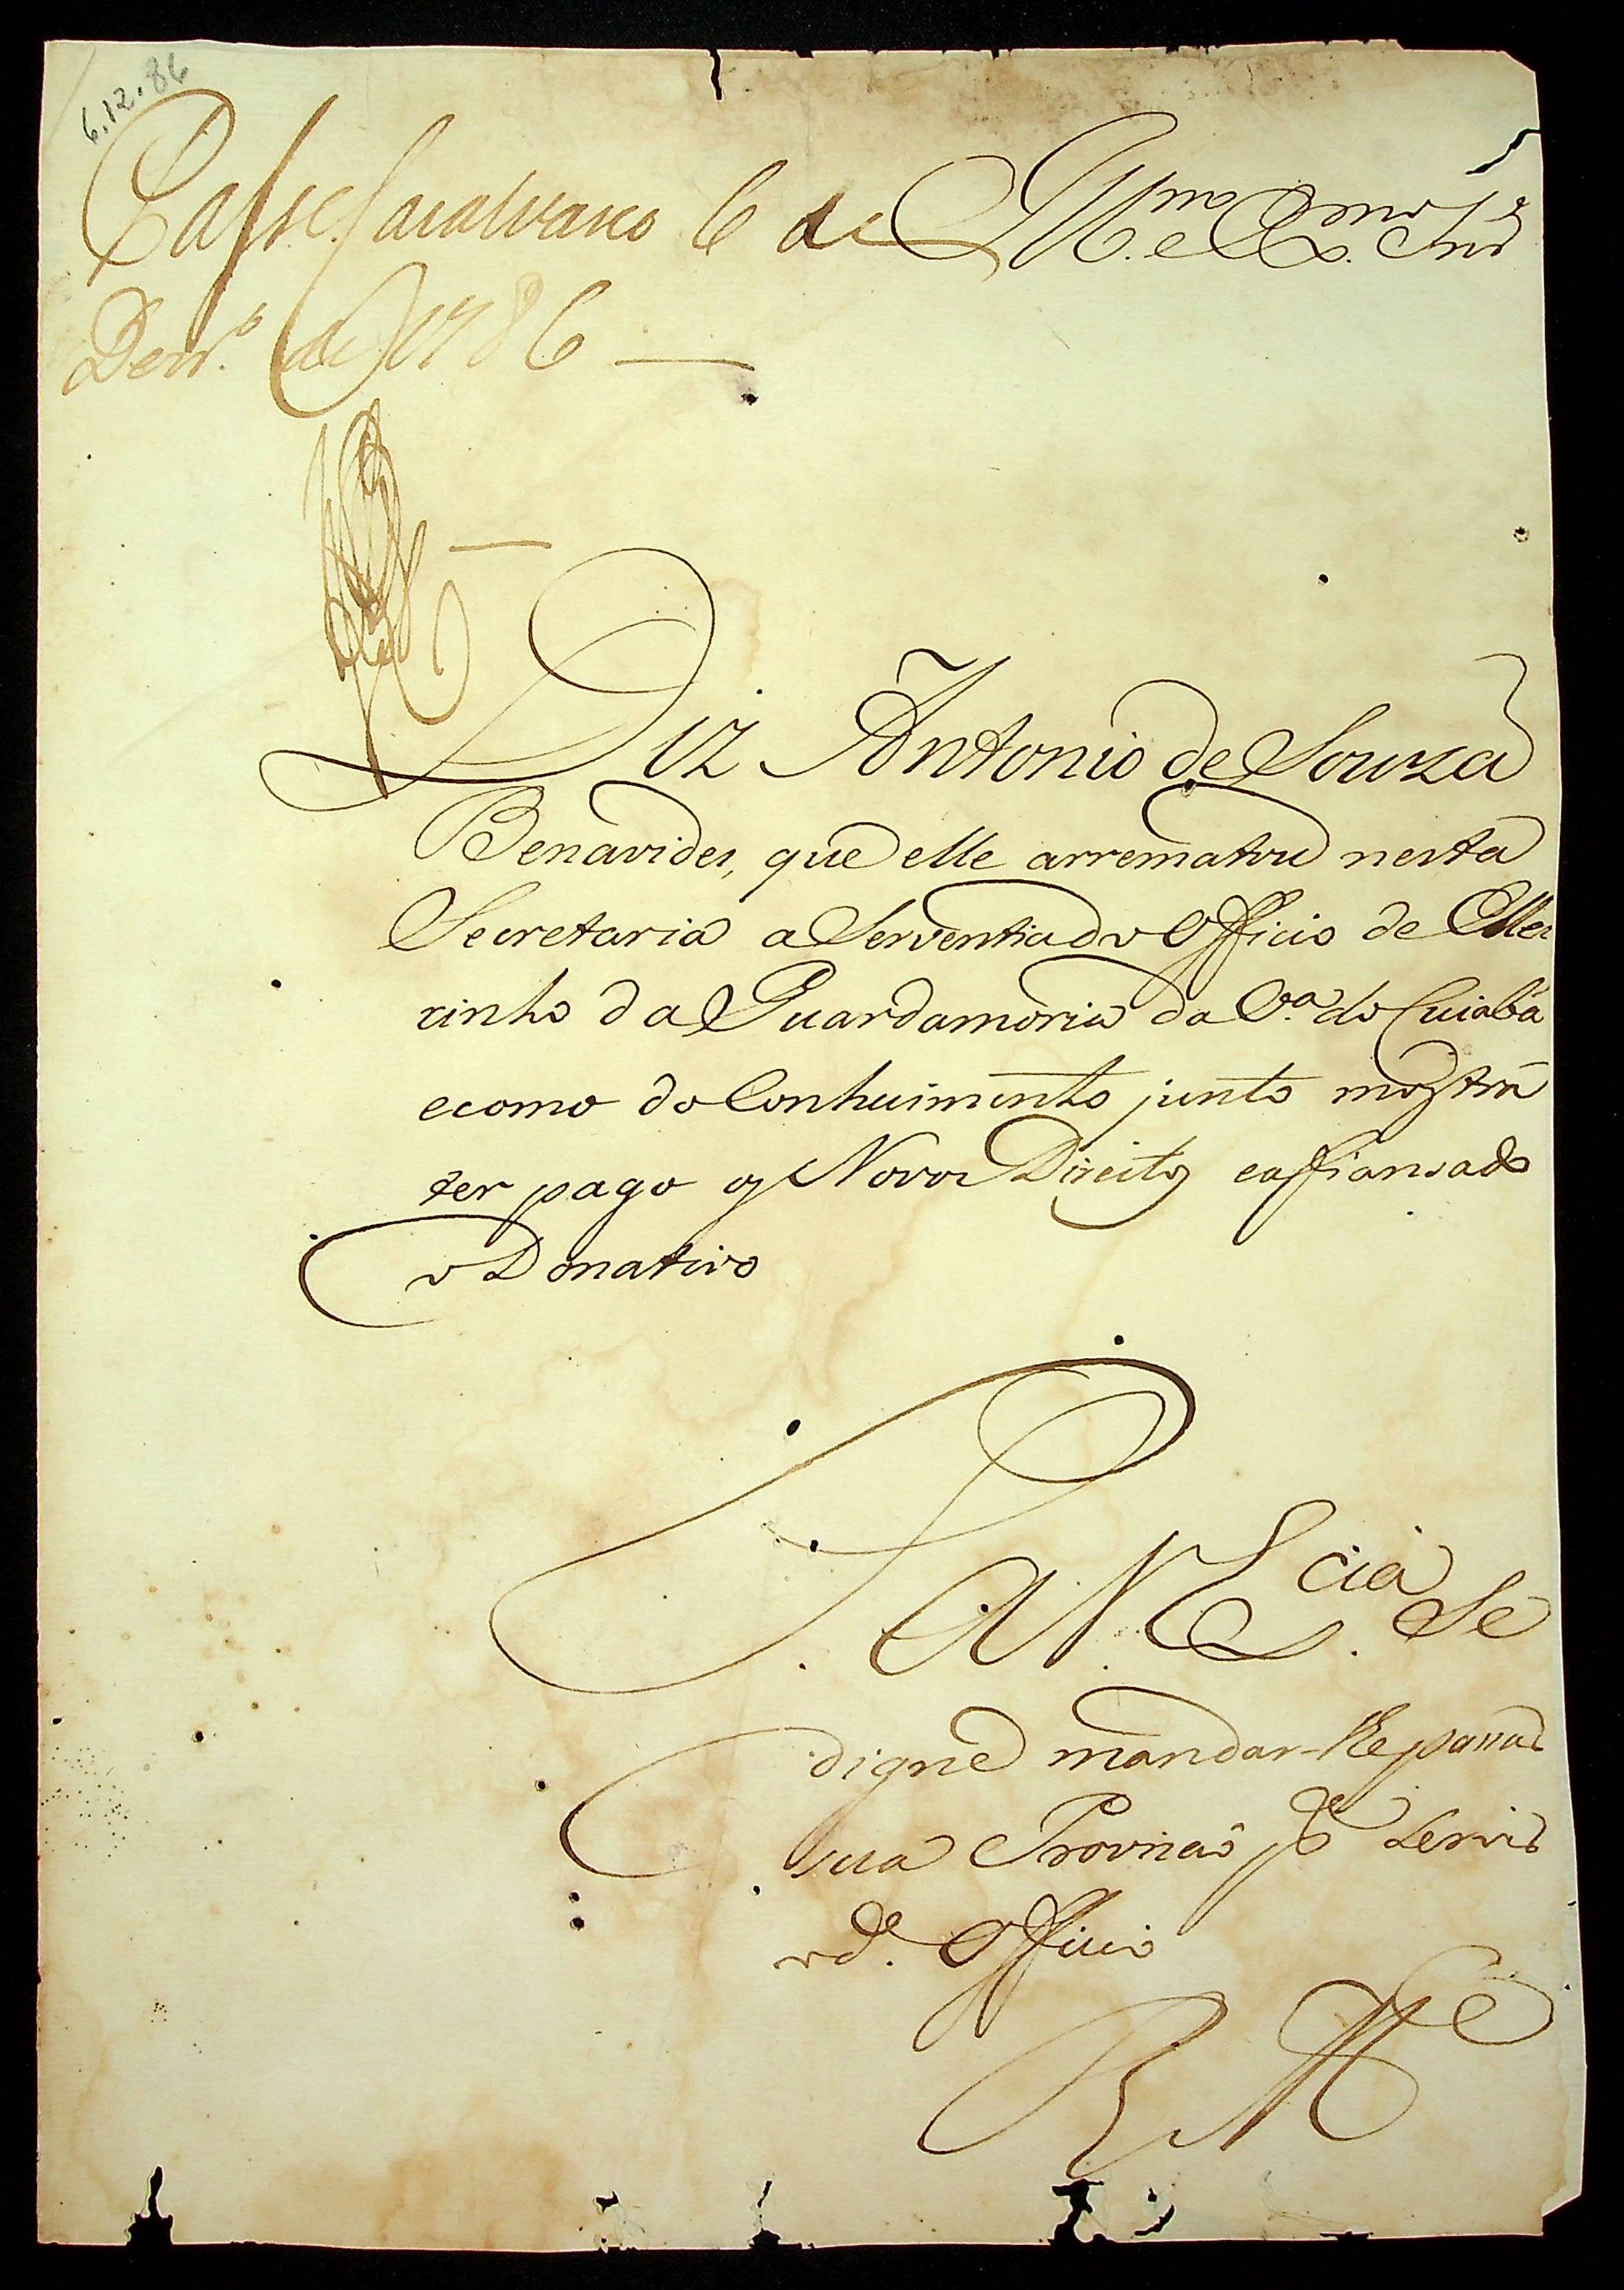 6.12.86
Passe. Casalvasco 6 de
Dezr.º de 1786
Illmo. e Exmo. Snr
Diz Antonio de Souza
Benavides, que elle arrematou nesta
Secretaria a Serventia do Officio de Mei
rinho da Guardamoria da Va. do Cuiabá
ecomo do Conhecimento junto mostra
ter pago os Novos Direitos eaffiansado
o Donativo
P. A V. Ecia. Se
digne mandar-lhe passar
sua Provizaõ pa. servir
o do. Officio
R Mce